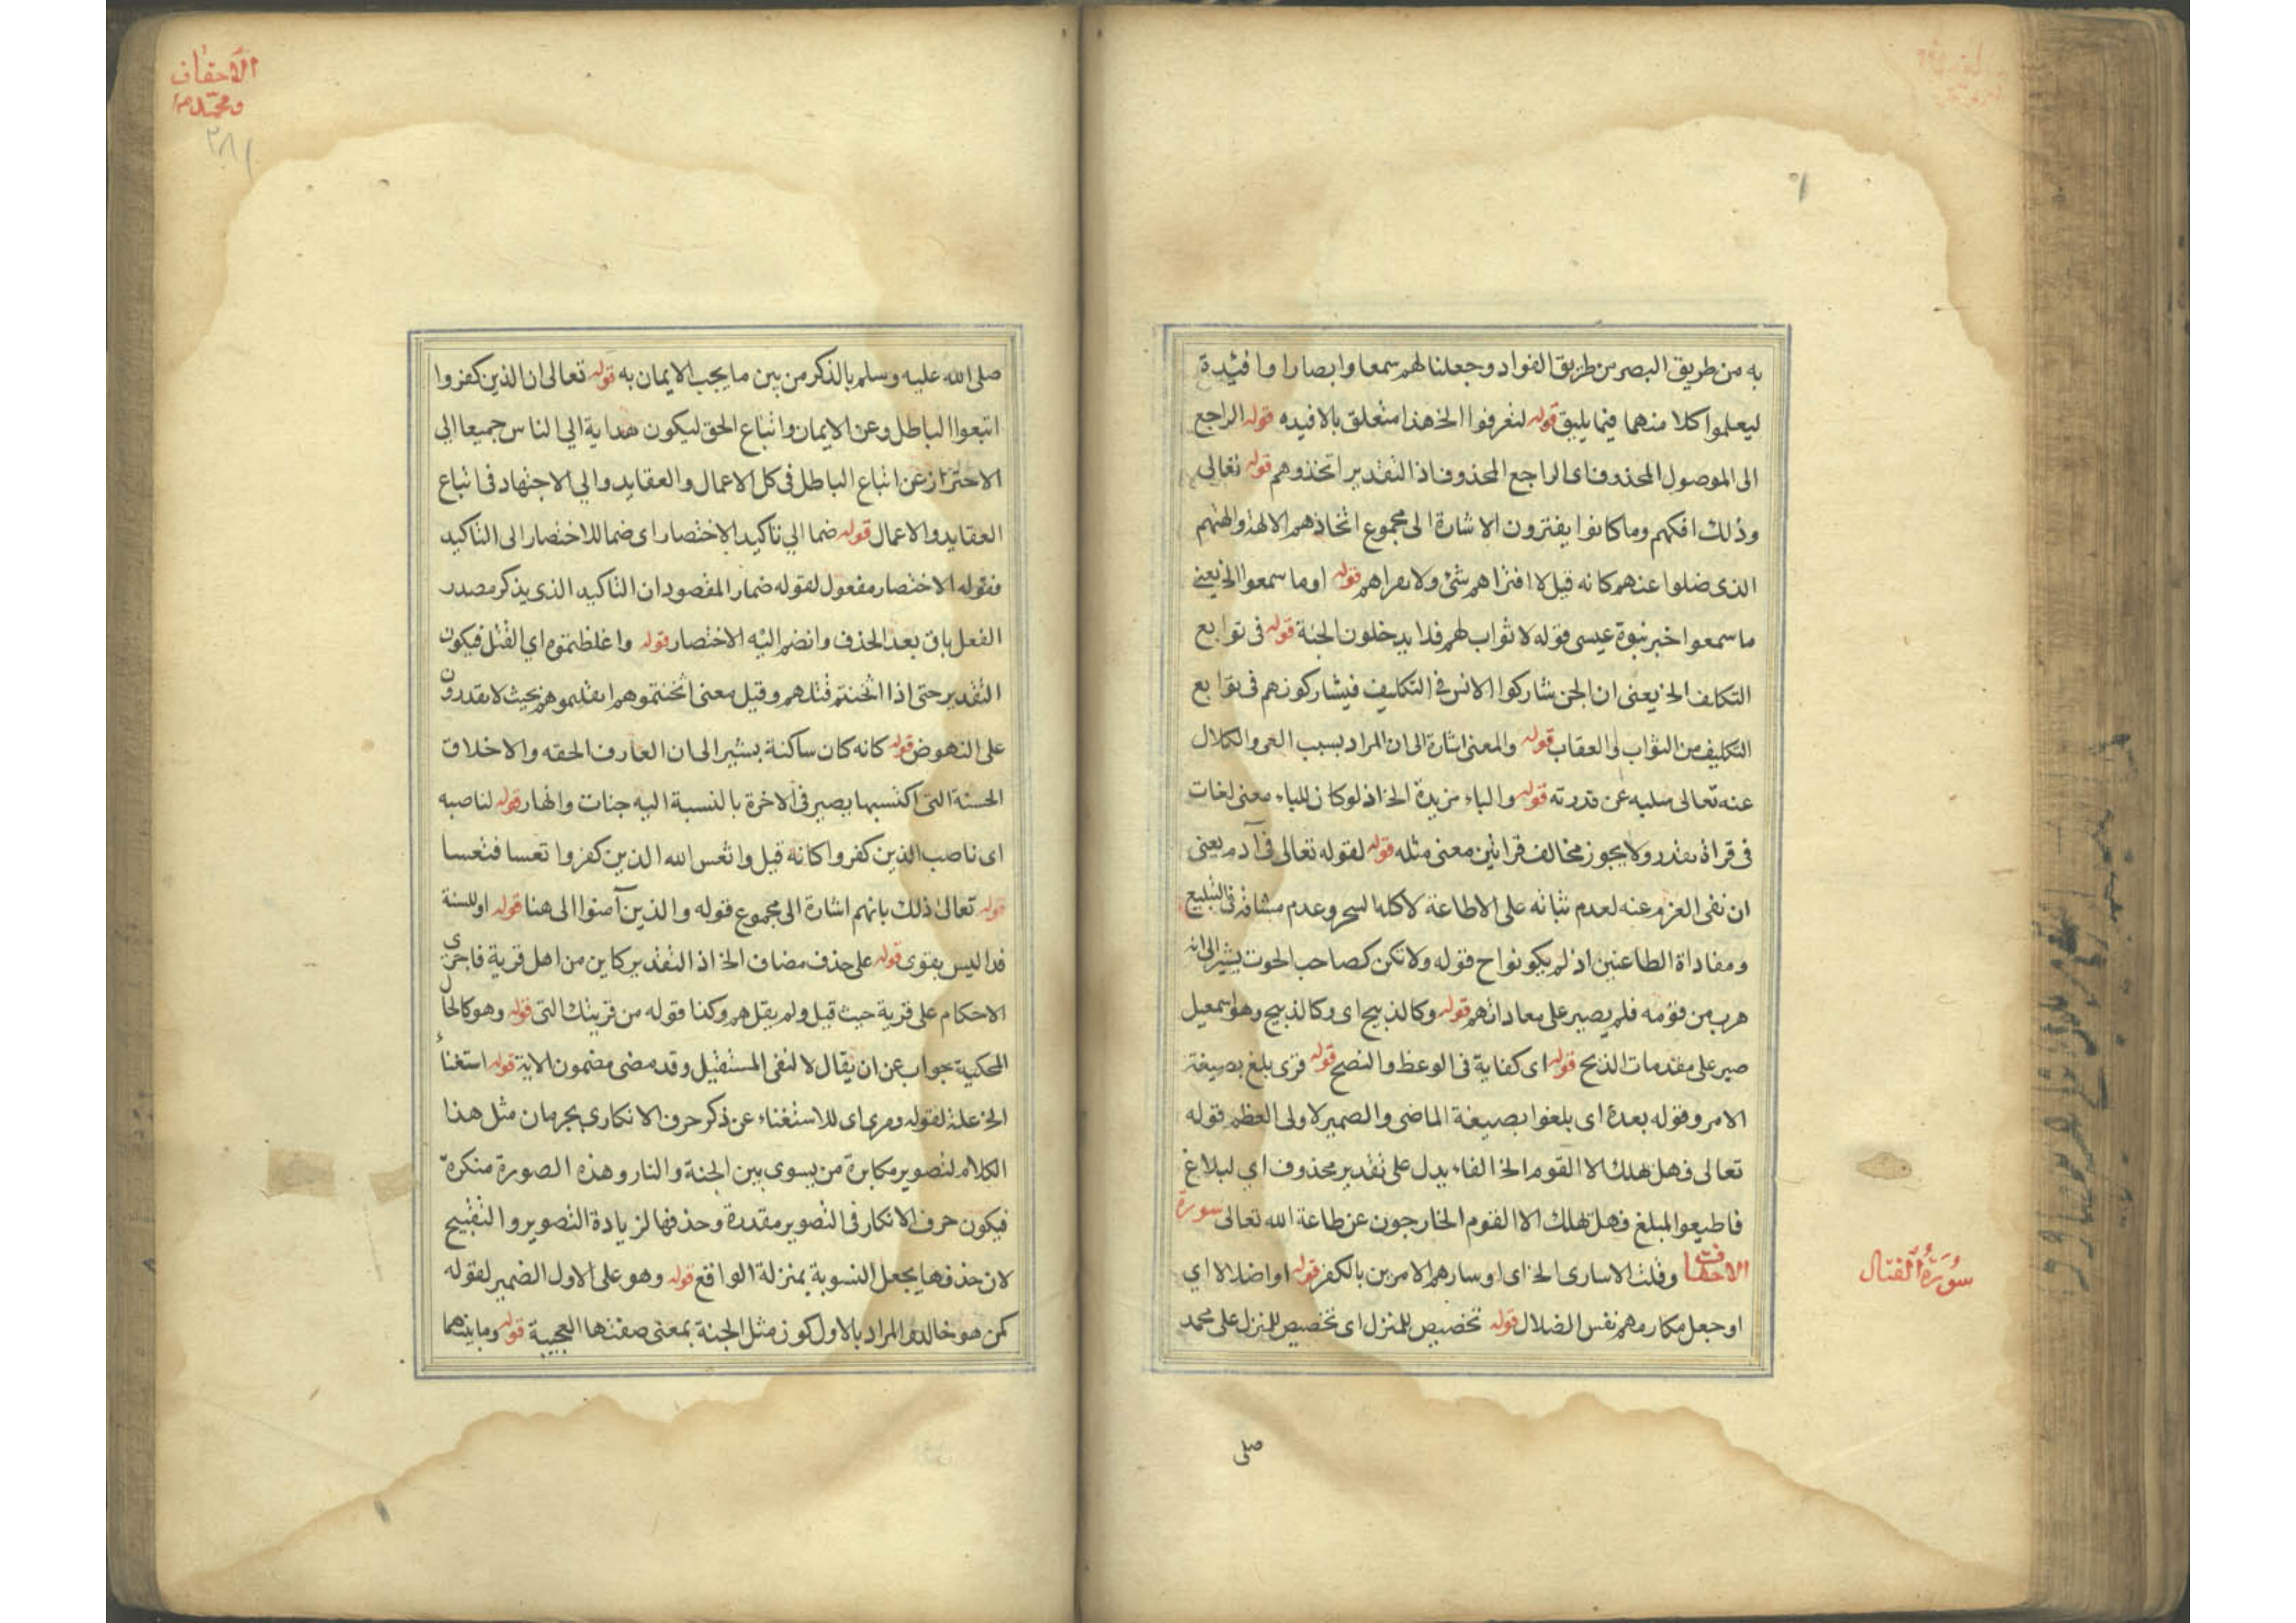 به من طريق البصر من طريق الفواد وجعلنا لهم سمعا وابصارا وافئيدة
ليعلموا كلا منهما فيما يليق قوله لتعرفوا الخ هذا متعلق بالافيده قوله الراجع
الى الموصول المحذوف اى الراجع المحذوف اذ التقدير اتخذوهم قوله تعالى
وذلك افكهم وما كانوا يفترون الاشارة الى مجموع اتخاذهم الالهة والهتهم
الذى ضلوا عنهم كانه قيل لا افتراهم شئ ولا قوله او ما سمعوا الخ يعنى
ما سمعوا خبر نبوة عيسى قوله لا ثواب لهم فلا يدخلون الجنة قوله فى توابع
التكلف الخ يعنى ان الجن شاركوا الانس فى التكليف فيشاركونهم فى توابع
التكليف من الثواب والعقاب قوله والمعنى اشارة الى ان المراد بسبب العى والكلال
عنه تعالى سلبه عن قدرته قوله والباء مزيدة الخ اذ لو كان للباء معنى لغات
فى يقدر ولا يجوز مخالف قرائتين معنى مثله قوله لقوله تعالى فى آدم يعنى
ان نفى العزم عنه لعدم ثباته على الاطاعة لا كله السحر وعدم فى التبليغ
ومفاداة الطاعنين اذ لم يكونوا ح قوله ولا تكن كصاحب الحوت يشير الى انه
هرب من قومه فلم يصبر على معاداتهم قوله وكالذبيح اى وكالذبيح وهو اسمعيل
صبر على مقدمات الذبح قوله اى كفاية فى الوعظ والنصح قوله قرى بلغ بصيغة
الامر وقوله بعده اى بلغوا بصيغة الماضى والضمير لاولى العظم قوله
تعالى فهل هلك الا القوم الخ الفاء يدل على تقدير محذوف اى لبلاغ
فاطيعوا المبلغ فهل تهلك الا القوم الخارجون عن طاعة الله تعالى سورة
الاحقاف وقلت الاسارى الخ اى او سارهم الامرين بالكفر قوله او اضلالا اى
او جعل مكارمهم نفس الضلال قوله تخصيص للمنزل اى تخصيص للمنزل على محمد
سُورَةُ الْقتال
صلى
الاحقاف
ومحمد
٢٨١
صلى الله عليه وسلم بالذكر من بين ما يجب الايمان به قوله تعالى ان الذين كفروا
اتبعوا الباطل وعن الايمان واتباع الحق ليكون هداية الى الناس جميعا الى
الاحتراز عن اتباع الباطل فى كل الاعمال والعقايد والى الاجتهاد فى اتباع
العقايد والاعمال قوله ضما الى تاكيد الاختصار اى ضما للاختصار الى التاكيد
فقوله الاختصار مفعول لقوله ضما المقصود ان التاكيد الذى يذكر مصدر
الفعل باق بعد الحذف وانضم اليه الاختصار قوله واغلظتموه اى القتل فيكون
التقدير حتى اذا اثخنتم قتلهم وقيل معنى اثخنتموهم بحيث لا يقدرون
على النهوض قوله كانه كان ساكنة يشير الى ان العارف الحقه والاخلاق
الحسنة التى اكتسبها يصير فى الاخرة بالنسبة اليه جنات وانهار قوله لناصبه
اى ناصب الذين كفروا كانه قيل واتعس الله الذين كفروا تعسا فتعسا
قوله تعالى ذلك بانهم اشارة الى مجموع قوله والذين آمنوا الى هنا قوله او للسنة
فدا ليس بقوى قوله على حذف مضاف الخ اذ التقدير كاين من اهل قرية فاجرى
الاحكام على قرية حيث قيل ولم يقل هم وكذا قوله من قريتك التى قوله وهو كالحال
المحكية جواب عن ان يقال لا لنفى المستقبل وقد مضى مضمون الاية قوله استغناء
الخ علة لقوله اى للاستغناء عن ذكر حرف الانكار مثل هذا
الكلام لتصوير مكابرة من يسوى بين الجنة والنار وهذه الصورة منكرة
فيكون حرف الانكار فى التصوير مقدرة وحذفها لزيادة التصوير والتقبيح
لان حذفها يجعل التسوية بمنزلة الواقع قوله وهو على الاول الضمير لقوله
كمن هو خالد والمراد بالاول كون مثل الجنة بمعنى صفتها العجيبة قوله وما بينهما